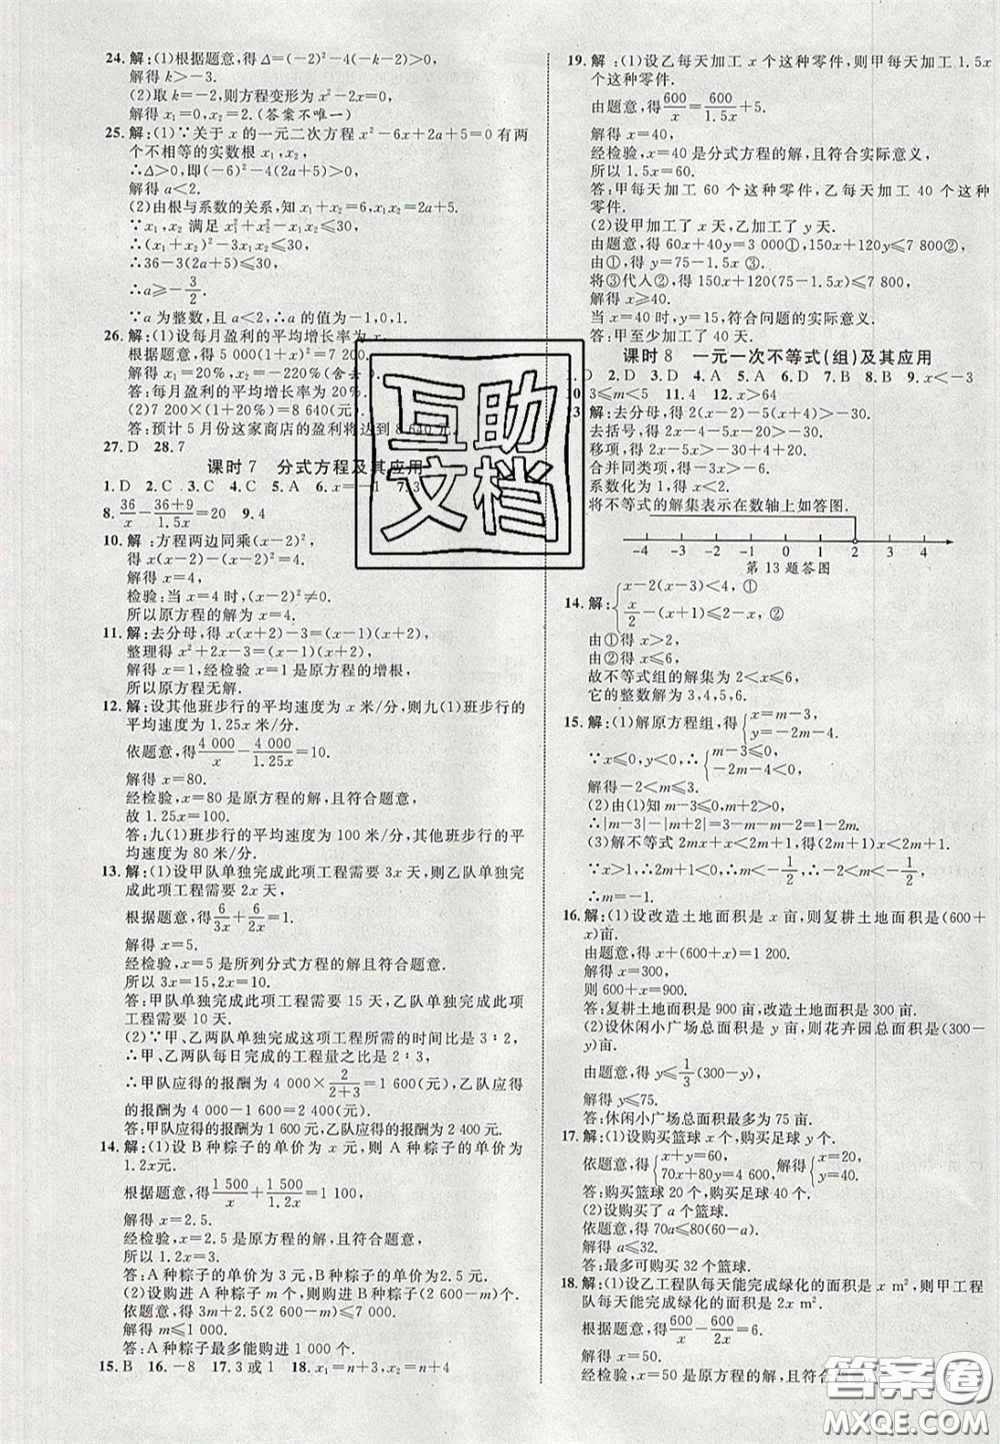 24. 解:(1)根据题意,得 Δ=(-2)²-4(-k-2)>0,
解得 k>-3.
(2)取 k=-2,则方程变形为 x²-2x=0,
解得 x₁=0,x₂=2.(答案不唯一)
25. 解:(1)∵关于 x 的一元二次方程 x²-6x+2a+5=0 有两
个不相等的实数根 x₁,x₂,
∴Δ>0,即(-6)²-4(2a+5)>0,
解得 a<2.
(2)由根与系数的关系,知 x₁+x₂=6,x₁x₂=2a+5.
∵x₁,x₂ 满足 x₁²+x₂²-x₁x₂⩽30,
∴(x₁+x₂)²-3x₁x₂⩽30,
∴36-3(2a+5)⩽30,
∴a⩾-3/2.
∵a 为整数,且 a<2,∴a 的值为-1,0,1.
26. 解:(1)设每月盈利的平均增长率为 x,
根据题意,得 5 000(1+x)²=7 200.
解得 x₁=20%,x₂=-220%(舍去).
答:每月盈利的平均增长率为 20%.
(2)7 200×(1+20%)=8 640(元).
答:预计 5 月份这家商店的盈利将达到 8 640 元.
27. D 28. 7
课时 7 分式方程及其应用
1. D 2. C 3. C 4. C 5. A 6. x=-1 7. 3
8. 36/x-(36+9)/1.5x=20 9. 4
10. 解:方程两边同乘(x-2)²,
得 x(x-2)-(x-2)²=4,
解得 x=4,
检验:当 x=4 时,(x-2)²≠0.
所以原方程的解为 x=4.
11. 解:去分母,得 x(x+2)-3=(x-1)(x+2),
整理得 x²+2x-3=(x-1)(x+2),
解得 x=1,经检验 x=1 是原方程的增根,
所以原方程无解.
12. 解:设其他班步行的平均速度为 x 米/分,则九(1)班步行的
平均速度为 1.25x 米/分.
依题意,得 4 000/x-4 000/1.25x=10.
解得 x=80.
经检验,x=80 是原方程的解,且符合题意,
故 1.25x=100.
答:九(1)班步行的平均速度为 100 米/分,其他班步行的平
均速度为 80 米/分.
13. 解:(1)设甲队单独完成此项工程需要 3x 天,则乙队单独完
成此项工程需要 2x 天,
根据题意,得 6/3x+6/2x=1,
解得 x=5.
经检验,x=5 是所列分式方程的解且符合题意.
所以 3x=15,2x=10.
答:甲队单独完成此项工程需要 15 天,乙队单独完成此项
工程需要 10 天.
(2)∵甲、乙两队单独完成这项工程所需的时间比是 3∶2,
∴甲、乙两队每日完成的工程量之比是 2∶3,
∴甲队应得的报酬为 4 000×2/(2+3)=1 600(元),乙队应得
的报酬为 4 000-1 600=2 400(元).
答:甲队应得的报酬为 1 600 元,乙队应得的报酬为 2 400 元.
14. 解:(1)设 B 种粽子的单价为 x 元,则 A 种粽子的单价为
1.2x元.
根据题意,得 1 500/x+1 500/1.2x=1 100,
解得 x=2.5.
经检验,x=2.5 是原方程的解,且符合题意,
所以 1.2x=3.
答:A 种粽子的单价为 3 元,B 种粽子的单价为2.5 元.
(2)设购进 A 种粽子 m 个,则购进 B 种粽子(2 600-m)个,
依题意,得 3m+2.5(2 600-m)⩽7 000,
解得 m⩽1 000.
答:A 种粽子最多能购进 1 000 个.
15. B 16. -8 17. 3 或 1 18. x₁=n+3,x₂=n+4
19. 解:(1)设乙每天加工 x 个这种零件,则甲每天加工 1.5x
个这种零件.
由题意,得 600/x=600/1.5x+5.
解得 x=40,
经检验,x=40 是分式方程的解,且符合实际意义,
所以 1.5x=60.
答:甲每天加工 60 个这种零件,乙每天加工 40 个这种零件.
(2)设甲加工了 x 天,乙加工了 y 天.
由题意,得 60x+40y=3 000①,150x+120y⩽7 800②.
由①,得 y=75-1.5x③.
将③代人②,得 150x+120(75-1.5x)⩽7 800,
解得 x⩾40.
当 x=40 时,y=15,符合问题的实际意义.
答:甲至少加工了 40 天.
课时 8 一元一次不等式(组)及其应用
D 2. D 3. D 4. A 5. A 6. D 7. B 8. B 9. x<-3
0. 3⩽m<5 11. 4 12. x>64
3. 解:去分母,得 2(x-2)-5(x+4)>-30.
去括号,得 2x-4-5x-20>-30.
移项,得 2x-5x>-30+4+20.
合并同类项,得-3x>-6.
系数化为 1,得 x<2.
将不等式的解集表示在数轴上如答图.
-4 -3 -2 -1 0 1 2 3 4
第 13 题答图
14. 解:{x-2(x-3)<4,①
x/2-(x+1)⩽2-x,②
由①得 x>2,
由②得 x⩽6,
故不等式组的解集为 2<x⩽6,
它的整数解为 3,4,5,6.
15. 解:(1)解原方程组,得{x=m-3,
y=-2m-4.
∵x⩽0,y<0,∴{m-3⩽0,
-2m-4<0,
解得-2<m⩽3.
(2)由(1)知 m-3⩽0,m+2>0,
∴|m-3|-|m+2|=3-m-m-2=1-2m.
(3)解不等式 2mx+x<2m+1,得(2m+1)x<2m+1,
∵x>1,∴2m+1<0,∴m<-1/2,∴-2<m<-1/2,
∴m=-1.
16. 解:(1)设改造土地面积是 x 亩,则复耕土地面积是(600+
x)亩.
由题意,得 x+(600+x)=1 200.
解得 x=300,
则 600+x=900.
答:复耕土地面积是 900 亩,改造土地面积是 300 亩.
(2)设休闲小广场总面积是 y 亩,则花卉园总面积是(300-
y)亩.
由题意,得 y⩽1/3(300-y),
解得 y⩽75.
答:休闲小广场总面积最多为 75 亩.
17. 解:(1)设购买篮球 x 个,购买足球 y 个,
依题意,得{x+y=60,
70x+80y=4 600,解得{x=20,
y=40.
答:购买篮球 20 个,购买足球 40 个.
(2)设购买了 a 个篮球.
依题意,得 70a⩽80(60-a).
解得 a⩽32.
答:最多可购买 32 个篮球.
18. 解:(1)设乙工程队每天能完成绿化的面积是 x m²,则甲工程
队每天能完成绿化的面积是 2x m².
根据题意,得 600/x-600/2x=6.
解得 x=50.
经检验,x=50 是原方程的解,且符合
互助
文档
答案圈
MXQE.COM